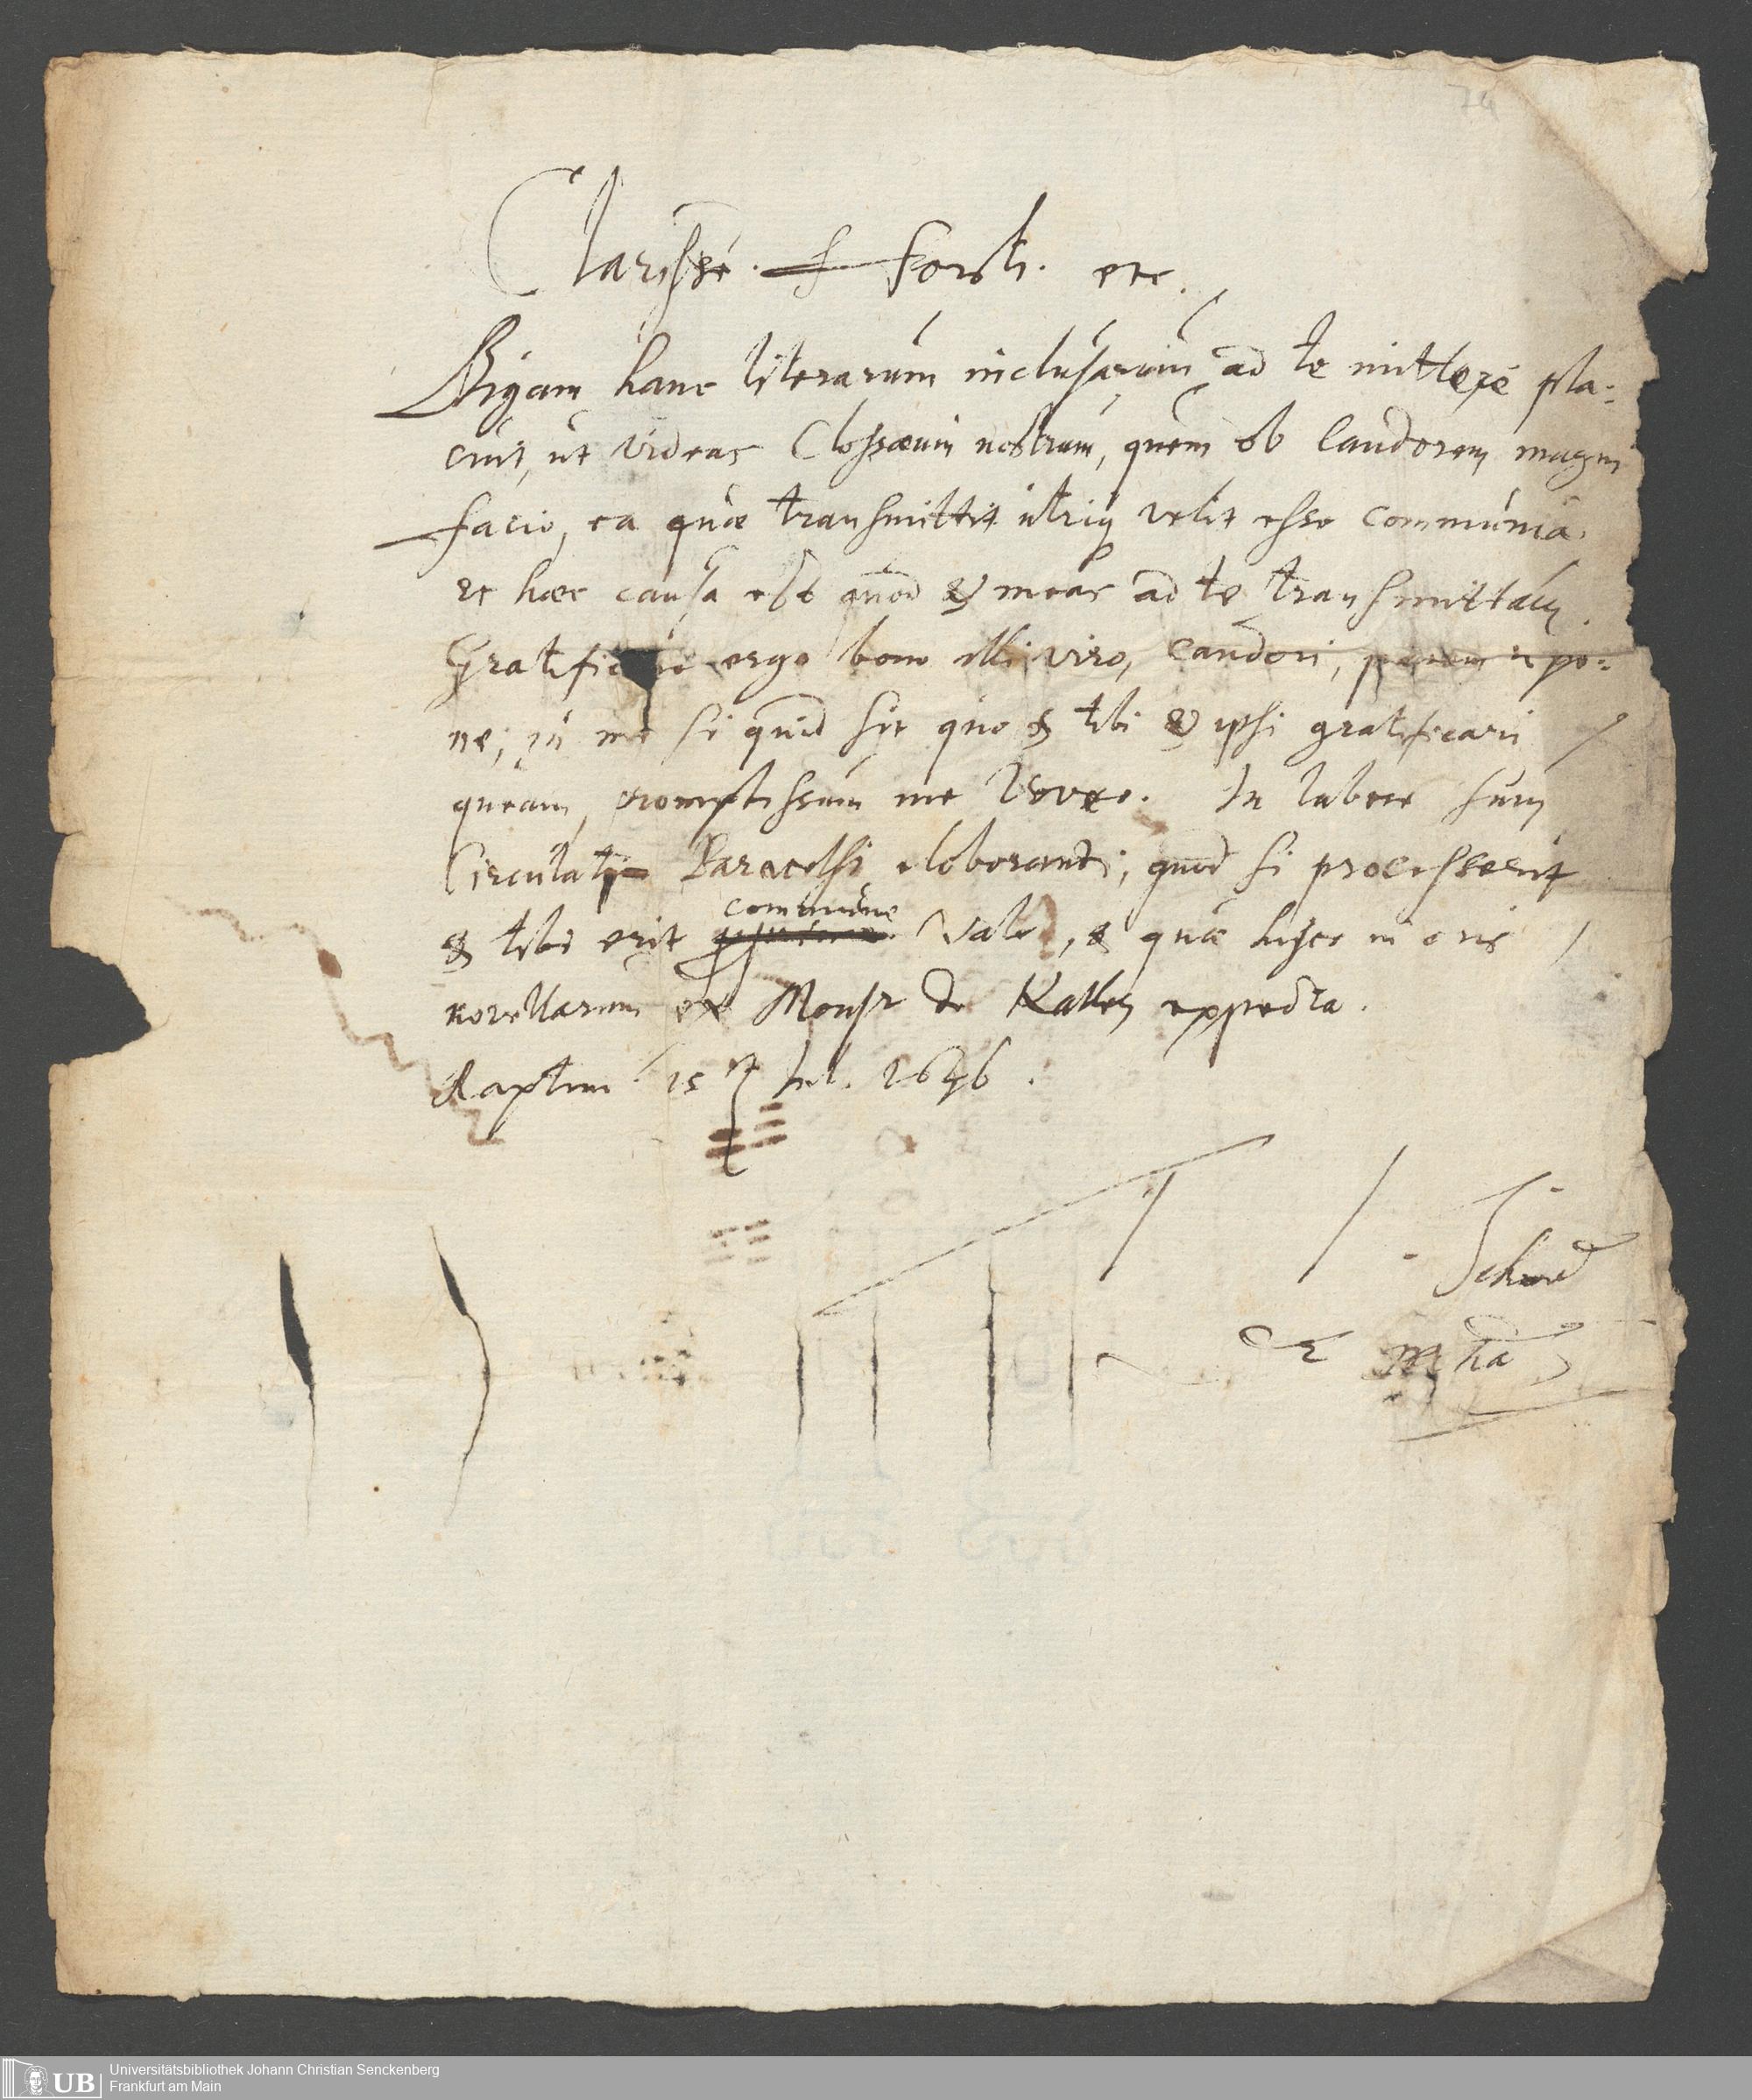 74
Clarissime etc.
Bigam hanc literarum inclusarum ad te mittere pla:
cuit, ut videas Clossæum nostrum, quem ob Candorem magni
facio, ea quæ transmittit utriq velit esse communia.
et hæc causa est quod & meas ad te transmittam
Gratificare ergo bono illi viro, Candori, parem repo:
ne; in me si quid sit quo & tibi & ipsi gratificari
queam, promptissum me voveo. In labore sum
Circulati Paracelsi elaborandi; quod si processerit
& tibi erit commune Vale, & quæ hisce in oris
novellarum ex Monsr de expecta.
Raptim 15 Jul. 1646.
Schmid
mpria
UB Universitätsbibliothek Johann Christian Senckenberg
Frankfurt am Main